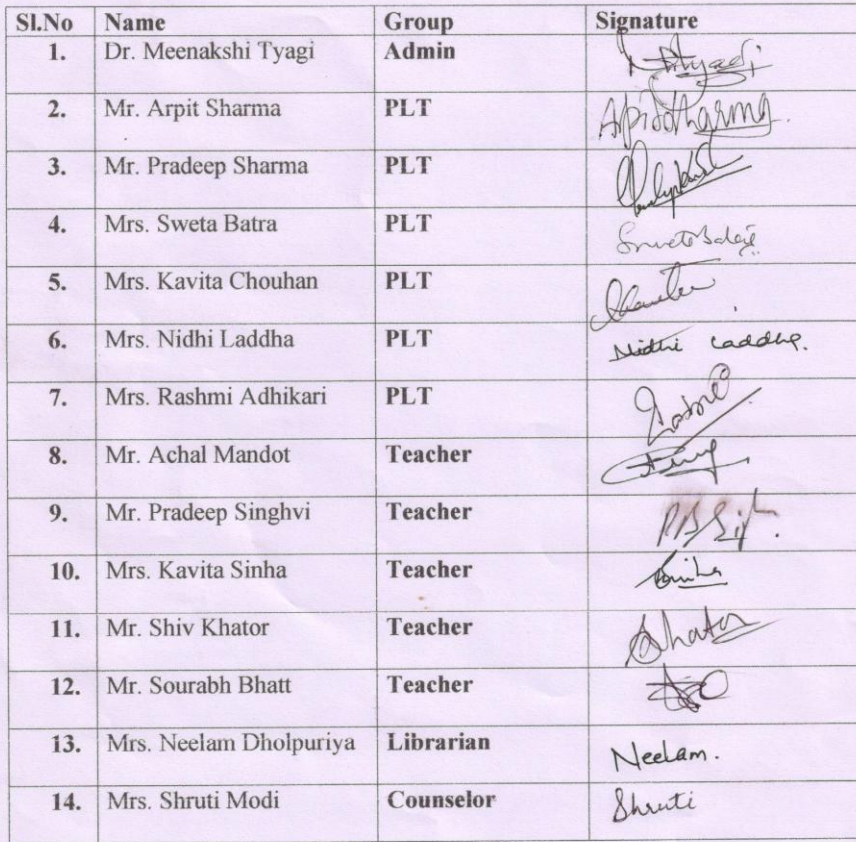 Sl.No Name Group Signature
1. Dr. Meenakshi Tyagi Admin
2. Mr. Arpit Sharma PLT
3. Mr. Pradeep Sharma PLT
4. Mrs. Sweta Batra PLT
5. Mrs. Kavita Chouhan PLT
6. Mrs. Nidhi Laddha PLT Nidhi Laddha.
7. Mrs. Rashmi Adhikari PLT
8. Mr. Achal Mandot Teacher
9. Mr. Pradeep Singhvi Teacher
10. Mrs. Kavita Sinha Teacher
11. Mr. Shiv Khator Teacher
12. Mr. Sourabh Bhatt Teacher
13. Mrs. Neelam Dholpuriya Librarian Neelam.
14. Mrs. Shruti Modi Counselor Shruti